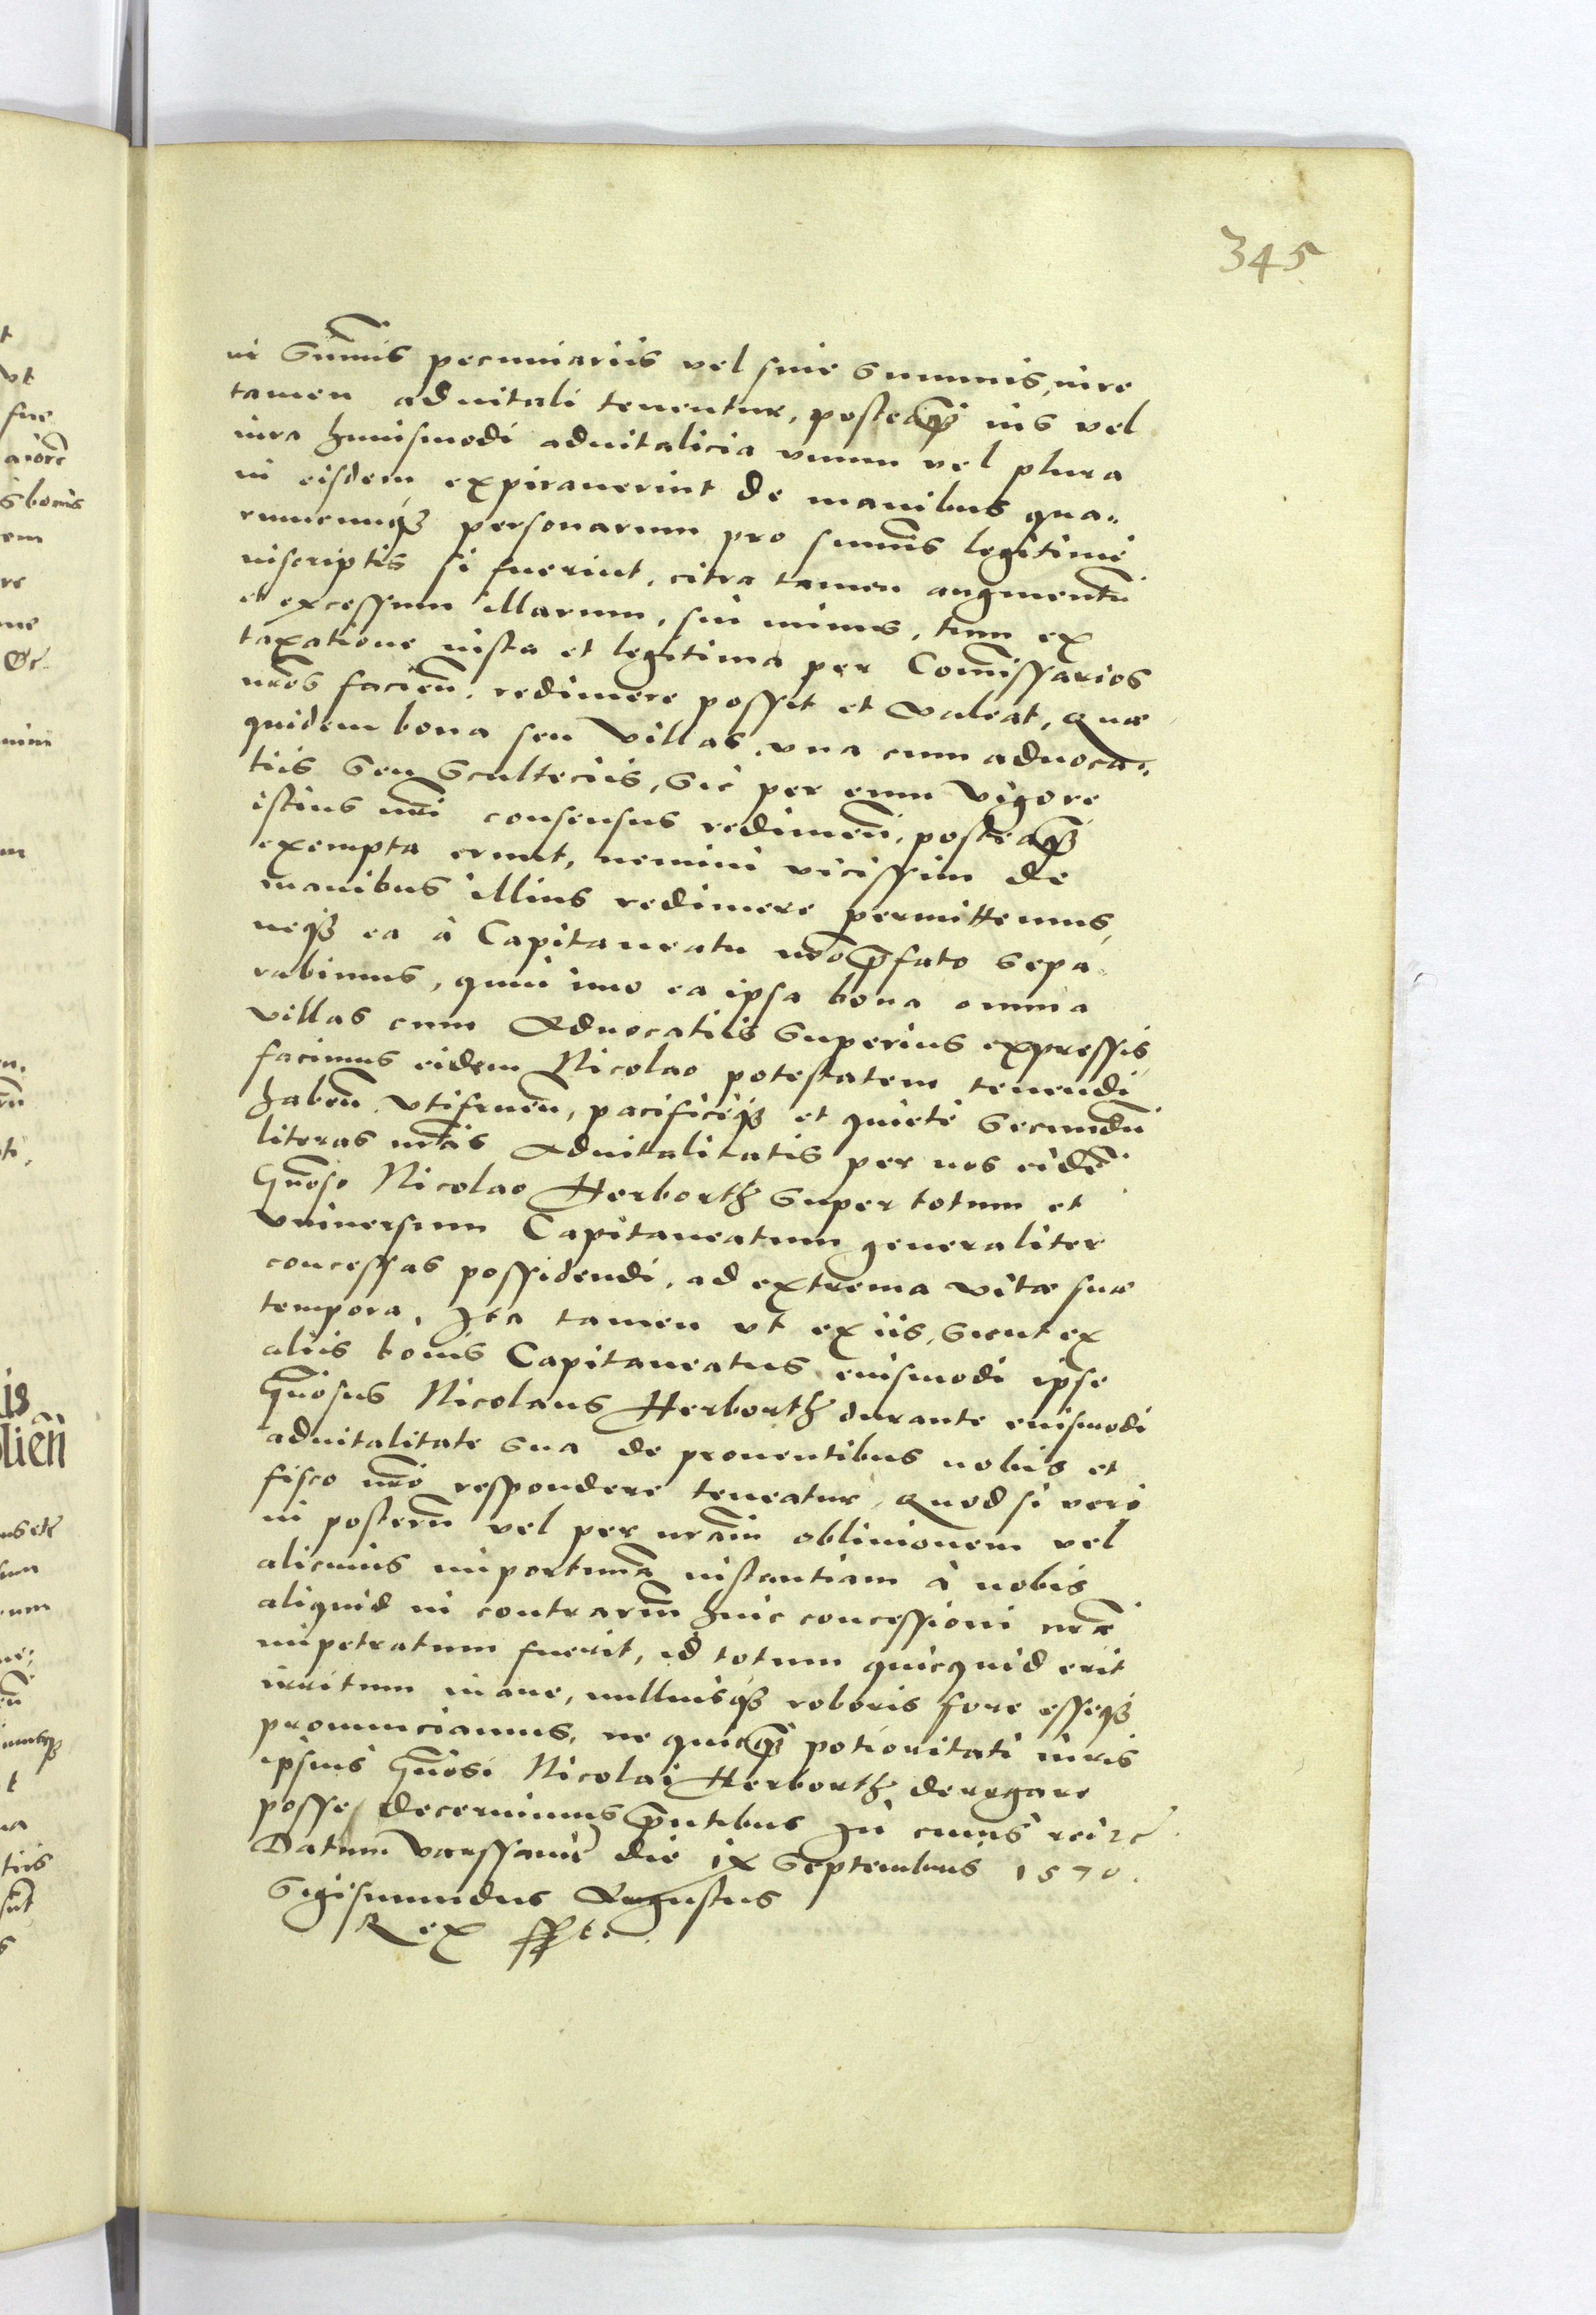 345
in sum̄is pecuniariis vel sine summis, iure
tamen aduitali tenentur, posteaq̄ȝ ius vel
iura huiusmodi aduitalicia unum vel plura
in eisdem expirauerint de manibus qua-
rumcunqȝ personarum pro sum̄is legitime
inscriptis si fuerint, citra tamen augmentū
et excessum illarum, sin minus, tum ex
taxatione iusta et legitima per Com̄issarios
nr̄os facien̄. redimere possit et valeat, Quae
quidem bona seu Villas, una cum aduoca-
tiis seu Sculteciis, sic per eum vigore
istius nr̄i consensus redimen̄. posteaq̄ȝ
exempta erunt, nemini vicissim de
manibus illius redimere permittemus,
neqȝ ea à Capitaneatu nr̄o p̄fato sepa-
rabimus, quin imo ea ipsa bona omnia
villas cum Aduocatiis superius expressis,
facimus eidem Nicolao potestatem tenendi
haben̄. Vtifruen̄, pacificeqȝ et quiete secundū
literas nr̄as Aduitalitatis per nos eidē
gn̄oso Nicolao Herborth super totum et
vniuersum Capitaneatum generaliter
concessas possidendi, ad extrema vitae suae
tempora, Ita tamen vt ex iis, sicut ex
aliis bonis Capitaneatus euismodi ipse
gn̄osus Nicolaus Herborth durante euismodi
aduitalitate sua de prouentibus nobis et
fisco nr̄o respondere teneatur, Quod si vero
in poster̄u vel per nr̄am obliuionem vel
alicuius importunā instantiam à nobis
aliquid in contrar̄m huic concessioni nr̄ae
impetratum fuerit, id totum quicquid erit
irritum inane, nulliusqȝ roboris fore esseqȝ
pronunciamus, ne quicq̄ȝ potioritati iuris
ipsius gn̄osi Nicolai Herborth derogare
posse decernimus p̄ntibus In cuius rei etc̄.
Datum Varssauiae die ix Septembris 1570.
Sigismundus Augustus
Rex sspt.